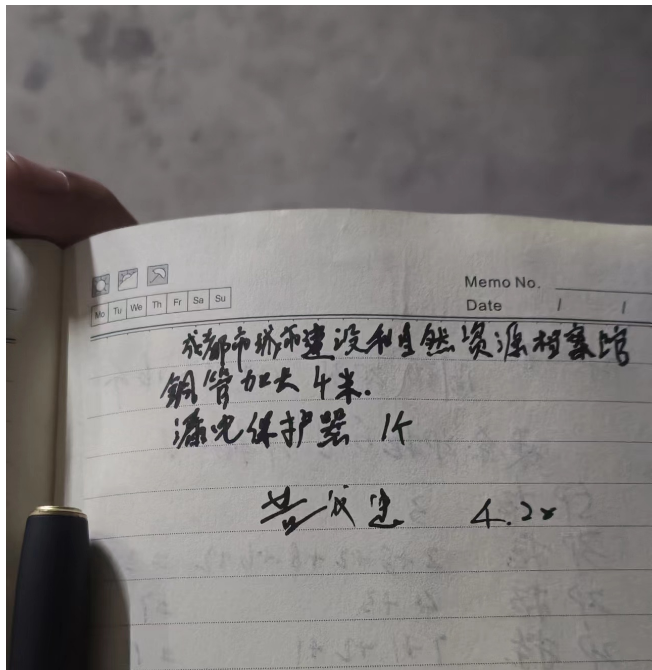 Memo No.
Mo Tu We Th Fr Sa Su
Date / /
成都市城市建设和自然资源档案馆
铜管加大 4米.
漏电保护器 1个
4.20